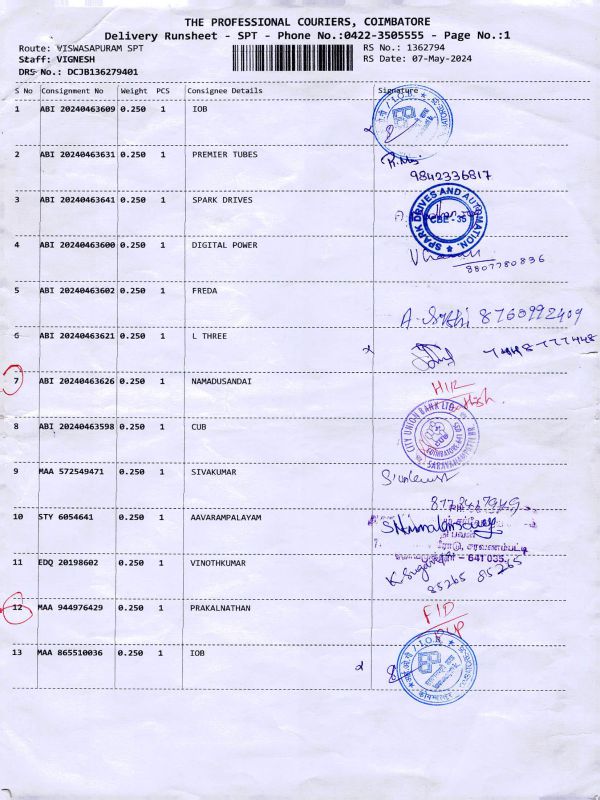 THE PROFESSIONAL COURIERS, COIMBATORE
Delivery Runsheet - SPT - Phone No.:0422-3505555 - Page No.:1
Route: VISWASAPURAM SPT RS No.: 1362794
Staff: VIGNESH RS Date: 07-May-2024
DRS No.: DCJB136279401
S No Consignment No Weight PCS Consignee Details Signature
1 ABI 20240463609 0.250 1 IOB
2 ABI 20240463631 0.250 1 PREMIER TUBES
9842336817
3 ABI 20240463641 0.250 1 SPARK DRIVES
SPARK DRIVES AND AUTOMATION.
CBE - 35
4 ABI 20240463600 0.250 1 DIGITAL POWER
8807780836
5 ABI 20240463602 0.250 1 FREDA
8760992409
6 ABI 20240463621 0.250 1 L THREE
7 ABI 20240463626 0.250 1 NAMADUSANDAI
8 ABI 20240463598 0.250 1 CUB
CITY UNION BANK LTD.
9 MAA 572549471 0.250 1 SIVAKUMAR
10 STY 6054641 0.250 1 AAVARAMPALAYAM
641 035.
11 EDQ 20198602 0.250 1 VINOTHKUMAR
85265 85265
12 MAA 944976429 0.250 1 PRAKALNATHAN
13 MAA 865510036 0.250 1 IOB